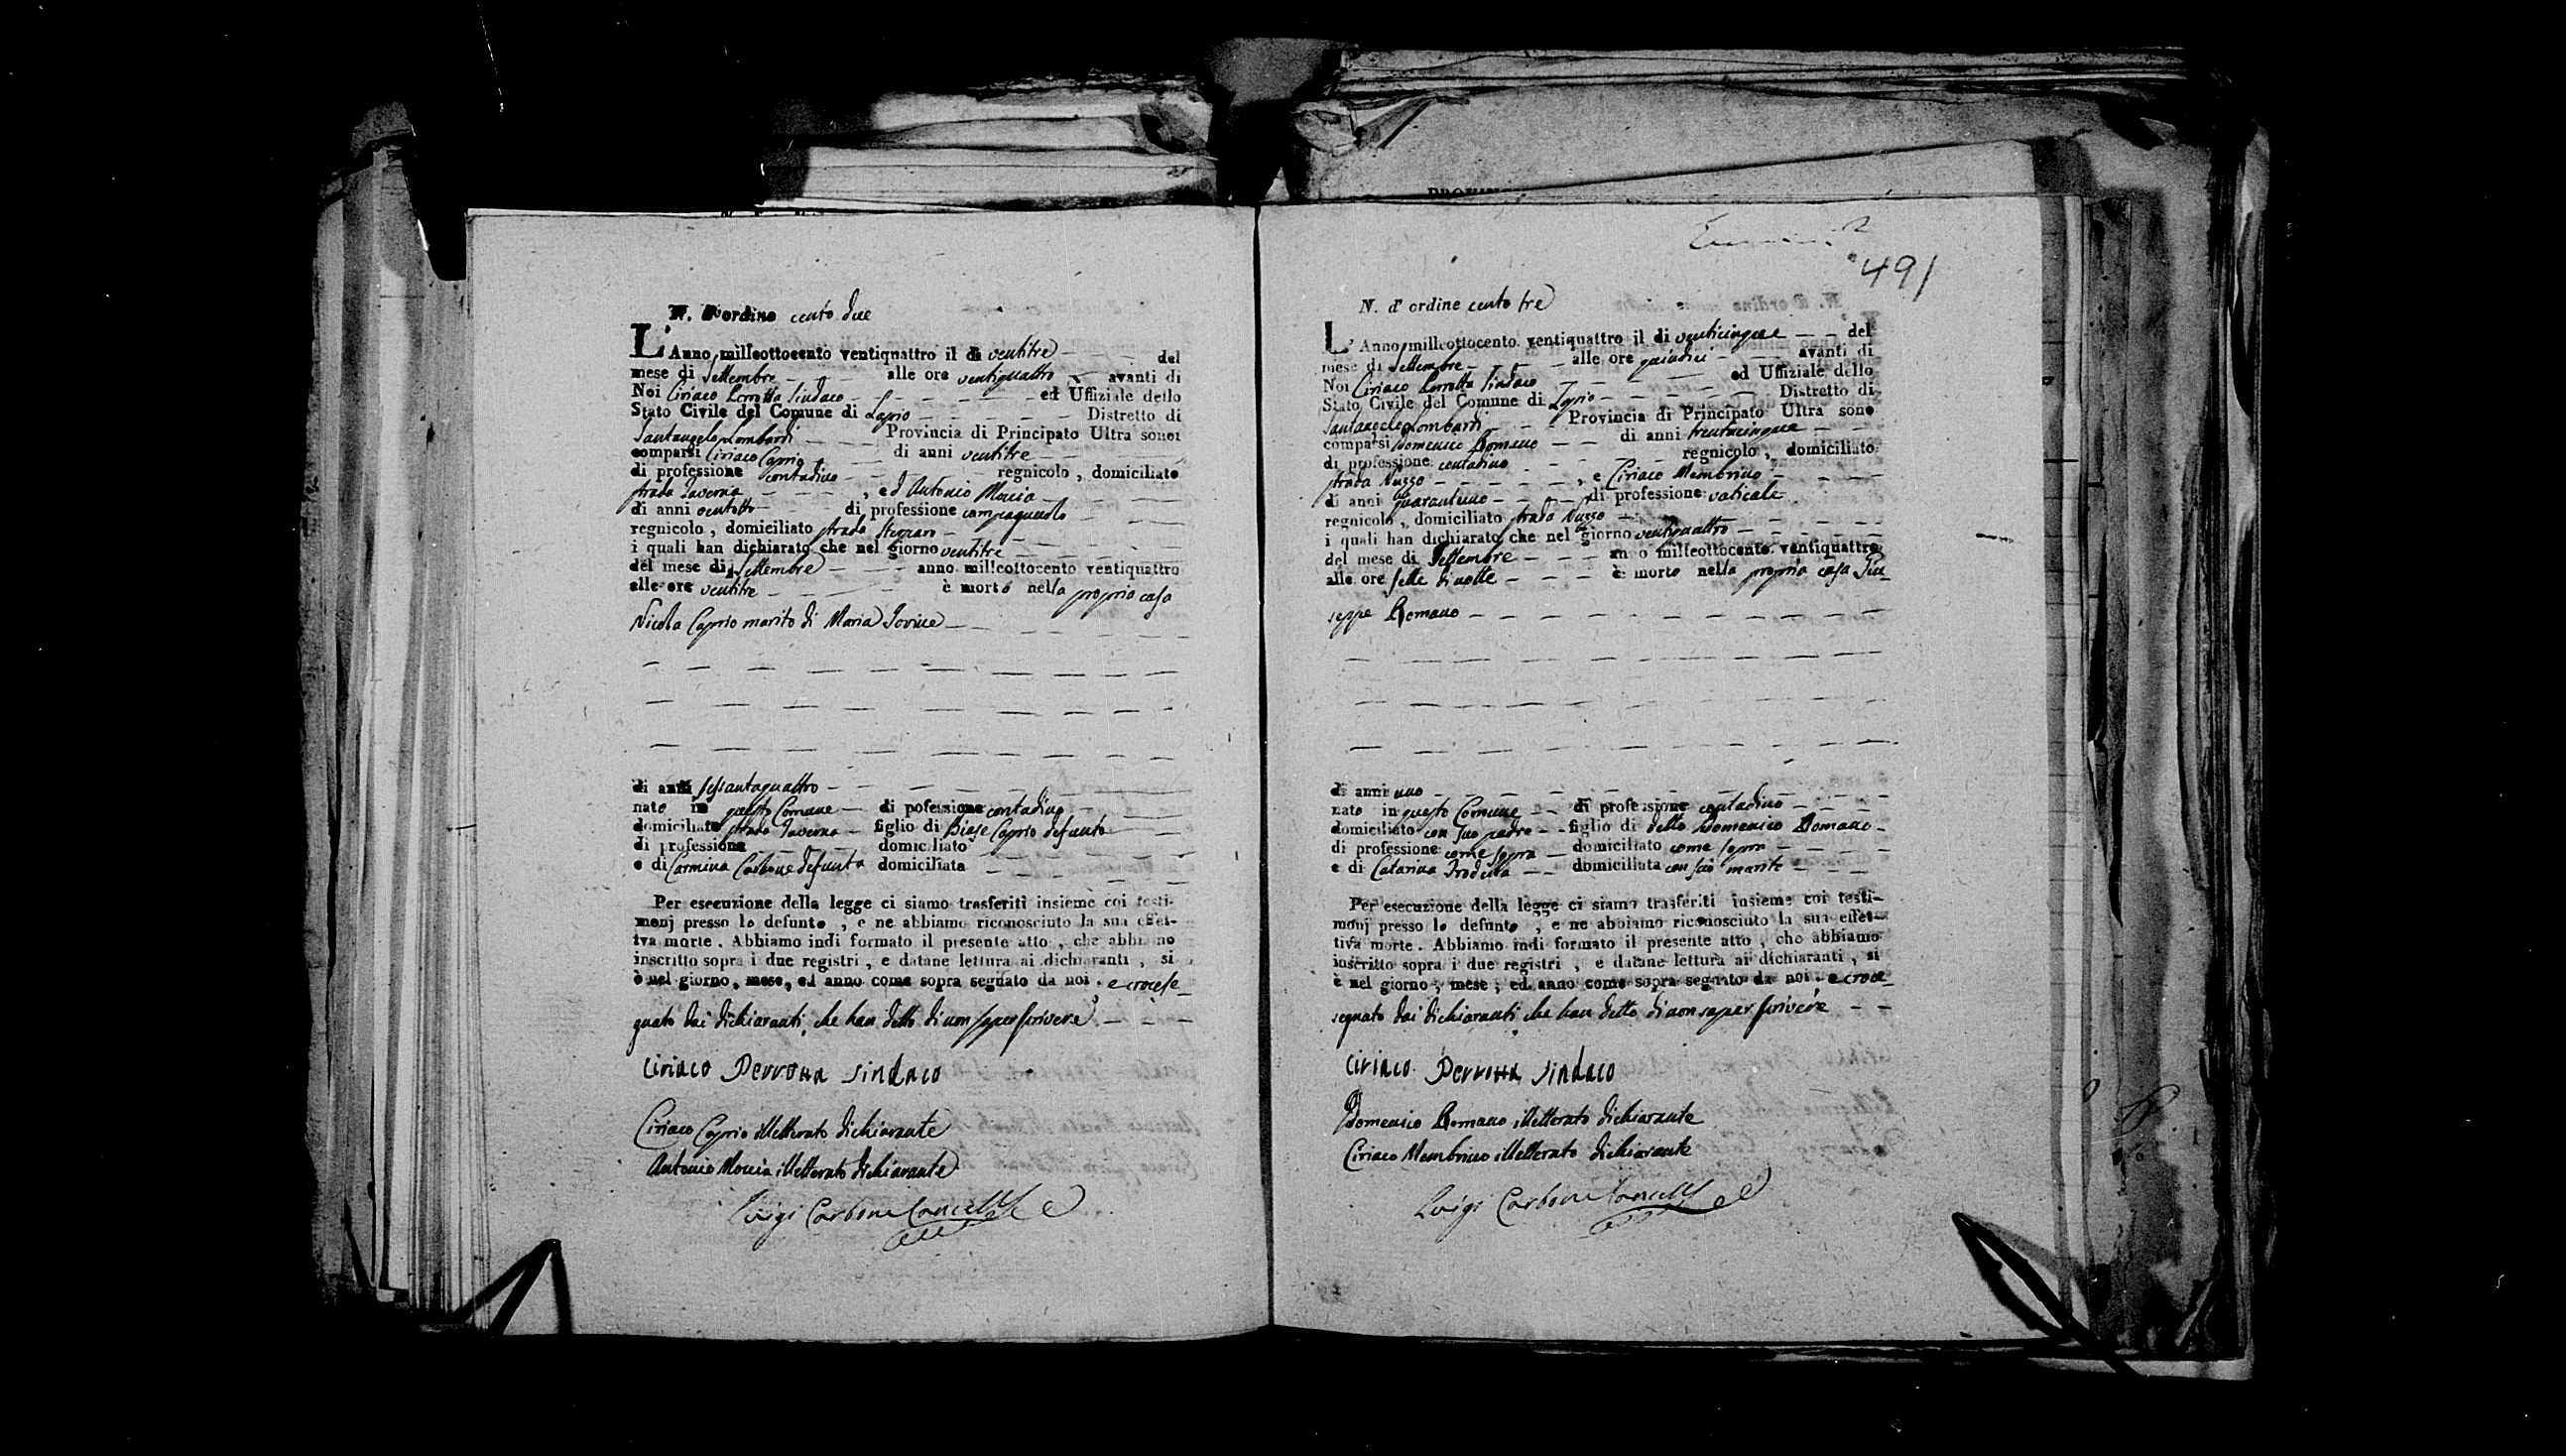 N. d'ordine cento due
L'Anno milleottocento ventiquattro il di ventitre del
mese di Settembre alle ore ventiquattro avanti di
Noi Ciriaco Perrotta Sindaco ed Uffiziale dello
Stato Civile del Comune di Lapio Distretto di
Santangelo Lombardi Provincia di Principato Ultra sono
comparsi Ciriaco Caprio di anni ventitre
di professione contadino regnicolo, domiciliato
strada Taverna, ed Antonio Moccia
di anni ventotto di professione
regnicolo, domiciliato strada
i quali han dichiarato che nel giorno ventitre
del mese di Settembre anno milleottocento ventiquattro
alle ore ventitre è morto nella propria casa
Nicola Caprio marito di Maria Iovine
di anni sessantaquattro
nato in questo Comune di pofessione contadino
domiciliato strada Taverna figlio di Biase Caprio defunto
di professione domiciliato
e di Carmina Carbone defunta domiciliata
Per esecuzione della legge ci siamo trasferiti insieme coi testi-
monj presso lo defunto, e ne abbiamo riconosciuto la sua effet-
tiva morte. Abbiamo indi formato il presente atto, che abbiamo
inscritto sopra i due registri, e datane lettura ai dichiaranti, si
è nel giorno, mese, ed anno come sopra segnato da noi. e crocese_
gnato dai dichiaranti, che han detto di non saper scrivere
Ciriaco Perrotta Sindaco
Ciriaco Caprio illetterato dichiarante
Antonio Moccia illetterato dichiarante
Luigi Carbone
491
N. d'ordine cento tre
L'Anno milleottocento ventiquattro il di venticinque del
mese di Settembre alle ore quindici avanti di
Noi Ciriaco Perrotta Sindaco ed Uffiziale dello
Stato Civile del Comune di Lapio Distretto di
Santangelo Lombardi Provincia di Principato Ultra sono
comparsi Domenico Romano di anni trentacinque
di professione contadino regnicolo, domiciliato
strada Nuzzo, e Ciriaco Membrino
di anni quarantuno di professione vaticale
regnicolo, domiciliato strada Nuzzo
i quali han dichiarato che nel giorno ventiquattro
del mese di Settembre anno milleottocento ventiquattro
alle ore sette di notte è morto nella propria casa Giu_
seppe Romano
di anni uno
nato in questo Comune di professione contadino
domiciliato con suo padre figlio di detto Domenico Romano
di professione come sopra domiciliato come sopra
e di Catarina domiciliata con suo marito
Per esecuzione della legge ci siamo trasferiti insieme coi testi-
monj presso lo defunto, e ne abbiamo riconosciuto la sua effet-
tiva morte. Abbiamo indi formato il presente atto, che abbiamo
inscritto sopra i due registri, e datane lettura ai dichiaranti, si
è nel giorno, mese, ed anno come sopra segnato da noi. e croce_
segnato dai dichiaranti che han detto di non saper scrivere
Ciriaco Perrotta Sindaco
Domenico Romano illetterato dichiarante
Ciriaco Membrino illetterato dichiarante
Luigi Carbone